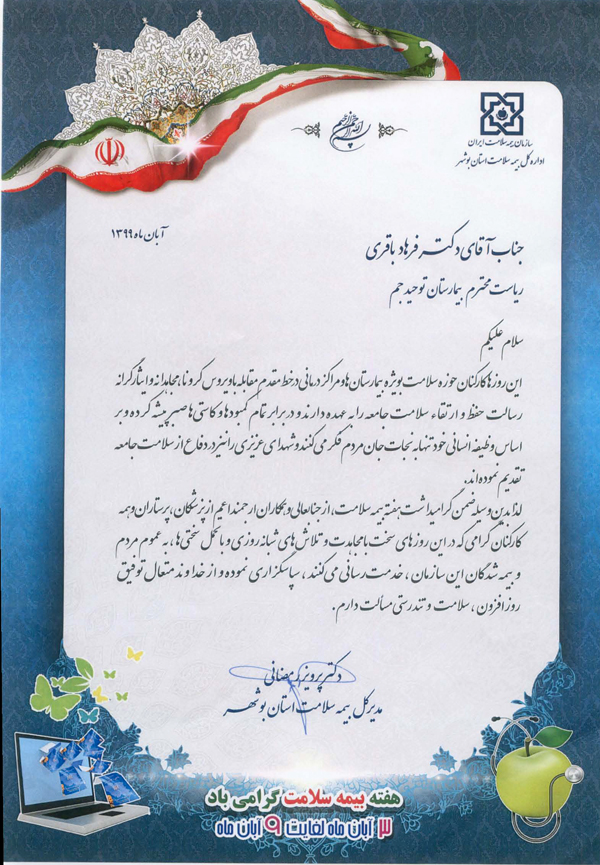 بسم الله الرحمن الرحیم
سازمان بیمه سلامت ایران
اداره کل بیمه سلامت استان بوشهر
آبان ماه ۱۳۹۹
جناب آقای دکتر فرهاد باقری
ریاست محترم بیمارستان توحید جم
سلام علیکم
این روزها کارکنان حوزه سلامت بویژه بیمارستان ها و مراکز درمانی در خط مقدم مقابله با ویروس کرونا، مجاهدانه و ایثارگرانه
رسالت حفظ و ارتقاء سلامت جامعه را به عهده دارند و در برابر تمام کمبودها و کاستی ها صبر پیشه کرده و بر
اساس وظیفه انسانی خود تنها به نجات جان مردم فکر می کنند و شهدای عزیزی را نیز در دفاع از سلامت جامعه
تقدیم نموده اند.
لذا بدین وسیله ضمن گرامیداشت هفته بیمه سلامت، از جنابعالی و همکاران ارجمند اعم از پزشکان، پرستاران و همه
کارکنان گرامی که در این روز های سخت با مجاهدت و تلاش های شبانه روزی و با تحمل سختی ها، به عموم مردم
و بیمه شدگان این سازمان، خدمت رسانی می کنند، سپاسگزاری نموده و از خداوند متعال توفیق
روزافزون، سلامت و تندرستی مسألت دارم.
دکتر پرویز رمضانی
مدیر کل بیمه سلامت استان بوشهر
هفته بیمه سلامت گرامی باد
۳ آبان ماه لغایت ۹ آبان ماه